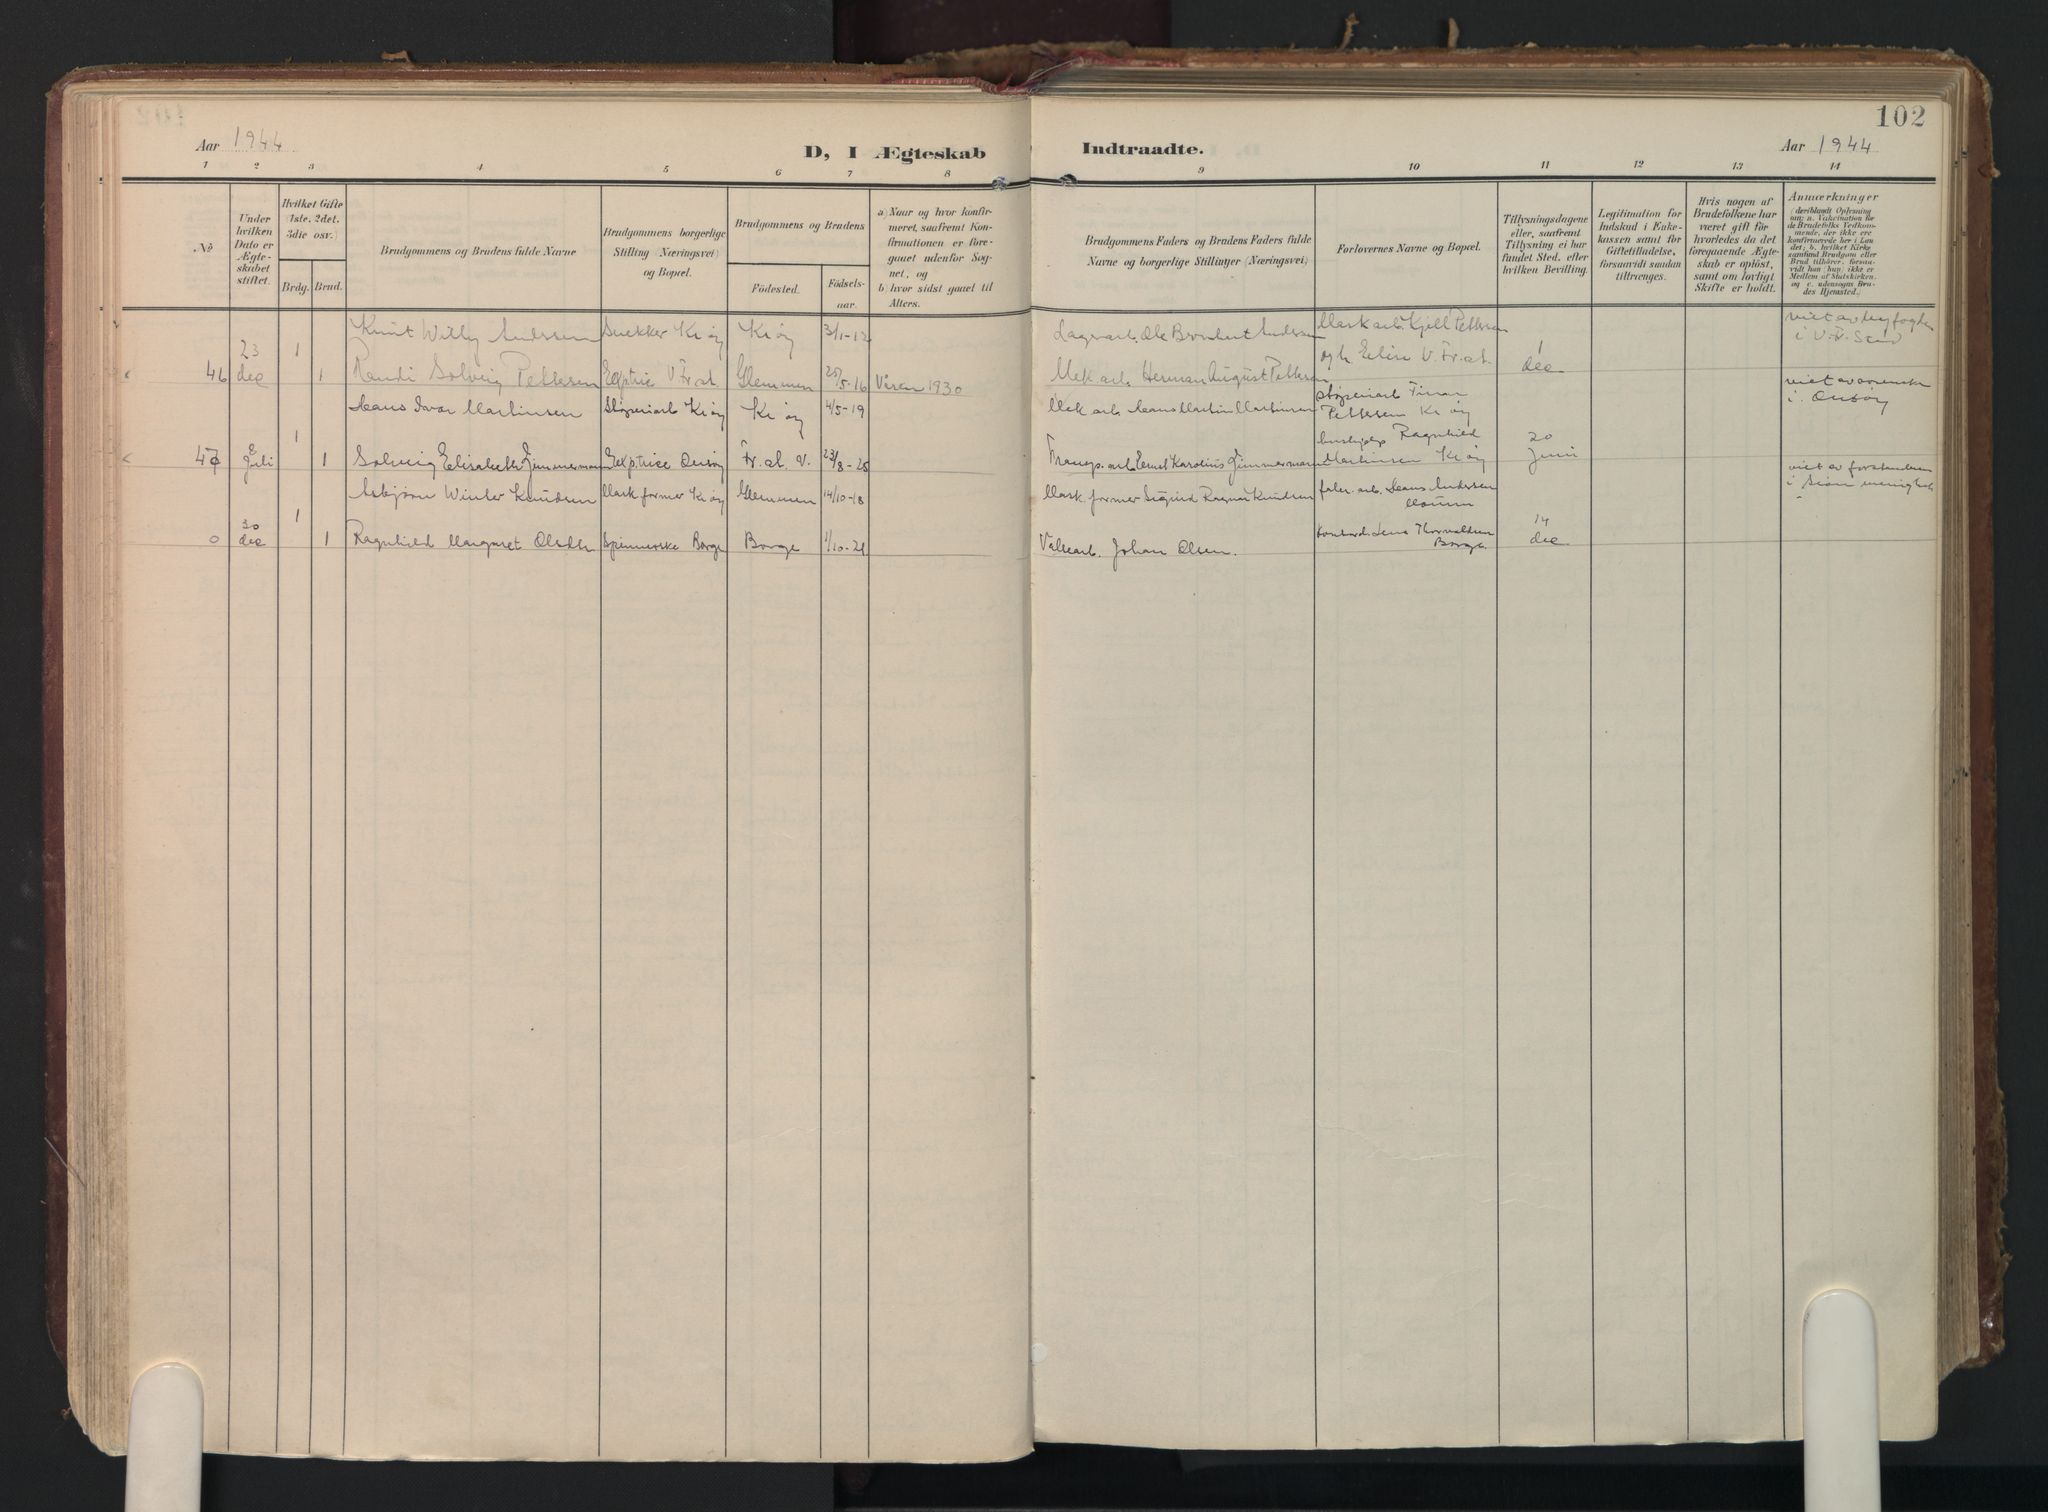 102
Aar 1944
D, I Ægteskab Indtraadte.
Aar 1944
1 2 3 4 5 6 7 8 9 10 11 12 13 14
No
Under hvilken Dato er Ægteskabet stiftet.
Hvilket Gifte 1ste. 2det. 3die osv.)
Brdg. Brud.
Brudgommens og Brudens fulde Navne
Brudgommens borgerlige Stilling (Næringsvei) og Bopæl.
Brudgommens og Brudens
Födested.
Födselsaar.
a) Naar og hvor konfirmeret, saafremt Konfirmationen er foregaaet udenfor Sognet, og
b) hvor sidst gaaet til Alters.
Brudgommens Faders og Brudens Faders fulde Navne og borgerlige Stillinger (Næringsvei)
Forlovernes Navne og Bopæl.
Tillysningsdagene eller, saafremt Tillysning ei har fundet Sted, efter hvilken Bevilling.
Legitimation for Indskud i Enkekassen samt for Giftetilladelse, forsaavidt saadan tiltrænges.
Hvis nogen af Brudefolkene har været gift för hvorledes da det foregaaende Ægteskab er oplöst, samt om lovligt Skifte er holdt.
Anmærkninger
Knut Willy Andersen Snekker Kr øy Kr øy 3/1-12
46 23 dec 1 1 Randi Solveig Pettersen Exptrice V Fr.st. Glemmen 25/5-16 Våren 1930
Lagerarb. Ole Andersen
Mek arb Herman August Pettersen
Maskarb. Kjell Pettersen og h. Elise V. Fr.st.
1 dec
viet av byfogden i V. Fr. Stad
Hans Ivar Martinsen Støperiarb Kr øy Kr øy 4/5-19
47 Juli 1 1 Solveig Elisabeth Zimmermann Exptrice Onsøy Fr.st. V. 23/8-25
Mek arb Hans Martin Martinsen
Transp. arb Ernst Karolius Zimmermann
Støperiarb Pettersen Kr øy
Ragnhild Martinsen Kr øy
20 Juni
viet av i Onsøy
Asbjørn Winter Knudsen Mask. former Kr øy Glemmen 14/10-18
0 30 dec 1 1 Ragnhild Margaret Olsen Spinnerske Borge Borge 1/10-21
Mask. former Sigurd Ragnar Knudsen
Valsearb. Johan Olsen.
fabr. arb. Hans Andersen
Thorvaldsen Borge
14 dec
viet av forstanderen i Sion menighet